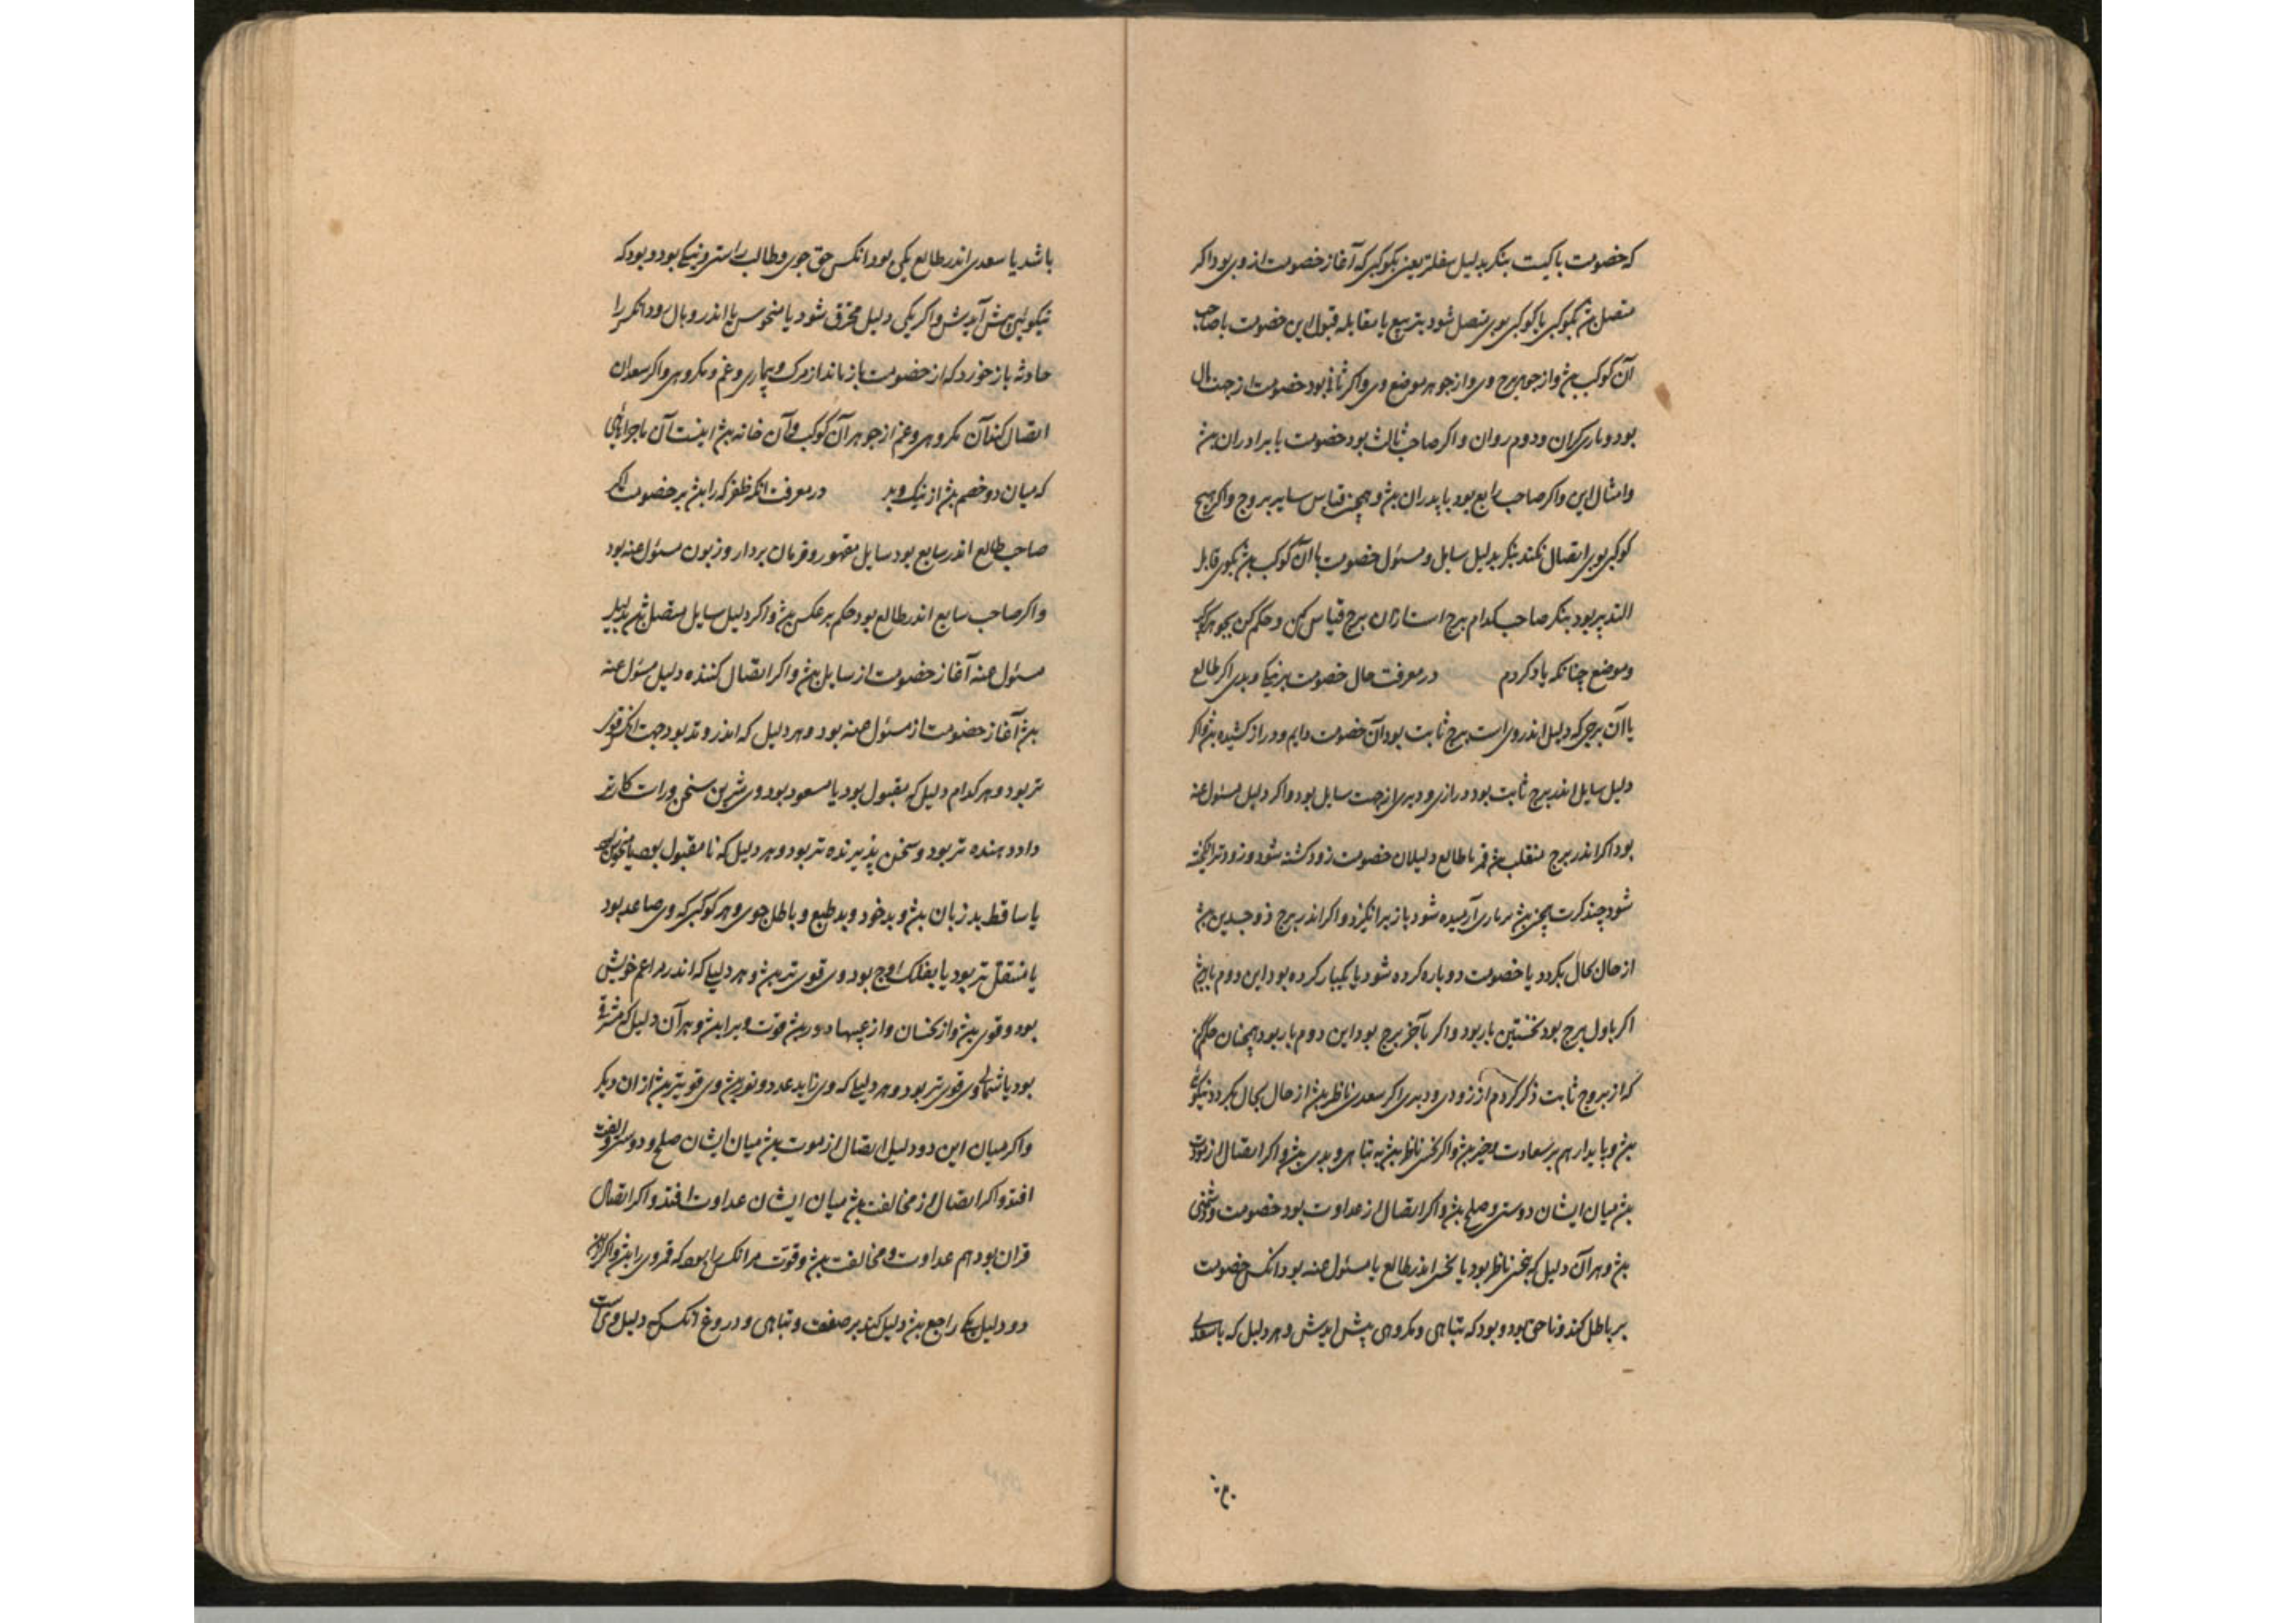 که خصومت با کیست بنکر بدلیل سفلتر یعنی بکوکبی که آغاز خصومت از وی بود اکر
متصل بکوکبی یا کوکبی بوی متصل شود بتربیع یا مقابله قبول این خصومت با صاحب
آن کوکب بش و از جوهر برج وی و از جوهر موضع وی و اکر ثانی بود خصومت از جهت مال
بود و یاری کران و دوم روان و اکر صاحب ثالث بود خصومت با برادران بش
و امثال این و اکر صاحب رابع بود با پدران بش و همچنین قیاس سایر بروج و اکر هیچ
کوکبی بوی اتصال نکند بنکر بدلیل سایل و مسئول خصومت با آن کوکب بش بکوی قابل
التدبیر بود بنکر صاحب کدام برج است از آن برج قیاس کن و حکم کن بجوهر
و موضع چنانکه یاد کردم در معرفت حال خصومت بر نیکی و بدی اکر طالع
یا آن برجی که دلیل اندر وی است برج ثابت بود آن خصومت دایم و دراز کشیده بش و اکر
دلیل سایل اندر برج ثابت بود درازی و دیری از جهت سایل بود و اکر دلیل مسئول عنه
بود اکر اندر برج منقلب بش قمر یا طالع دلیلان خصومت زود کشته شود و زود تر انکیخته
شود چند کرت همچنین بش هر باری آرمیده شود باز برانکیزد و اکر اندر برج ذو جسدین بش
از حال بحال بکردد یا خصومت دوباره کرده شود یا یکبار کرده بود این دوم بار بش
اکر باول برج بود نخستین بار بود و اکر بآخر برج بود این دوم بار بود همچنان حکم کن
که از بروج ثابت ذکر کردم از زودی و دیری اکر سعدی ناظر بش از حال بحال بکردد نیکوئی
بش و پایدار هم بر سعادت و خیر بش و اکر نحس ناظر بش به تباهی و بدی بش و اکر اتصال از مودت
بش میان ایشان دوستی و صلح بش و اکر اتصال از عداوت بود خصومت و دشمنی
بش و هر آن دلیل که بنحس ناظر بود یا نحس اندر طالع یا مسئول عنه بود انکس خصومت
بر باطل کند و ناحق بود و بود که تباهی و مکروهی پیش ایدش و هر دلیل که با سعدی
باشد یا سعدی اندر طالع یکی بود انکس حق جوی و طالب راستی و نیکی بود و بود که
نیکوئی پیش آیدش و اکر یکی دلیل محترق شود یا منحوس یا اندر وبال بود انکس را
حادثه باز خورد که از خصومت باز ماند از مرک و بیماری و غم و مکروهی و اکر سعدان
اتصال کند آن مکروهی و غم از جوهر آن کوکب و آن خانه بش اینست آن ماجراهای
که میان دو خصم بش از نیک و بد در معرفت انکه ظفر که را بش بر خصومت اکر
صاحب طالع اندر سابع بود سایل مقهور و فرمان بردار و زبون مسئول عنه بود
و اکر صاحب سابع اندر طالع بود حکم بر عکس بش و اکر دلیل سایل متصل بش بدلیل
مسئول عنه آغاز خصومت از سایل بش و اکر اتصال کننده دلیل مسئول عنه
بش آغاز خصومت از مسئول عنه بود و هر دلیل که اندر وتد بود حجت انکس قوی
تر بود و هر کدام دلیل که مقبول بود یا مسعود بود وی شیرین سخن و راست کارتر
داد دهنده تر بود و سخن پذیرنده تر بود و هر دلیل که نا مقبول بود یا منحوس
یا ساقط بد زبان بش و بدخود و بد طبع و باطل جوی و هر کوکبی که وی صاعد بود
یا مستقل تر بود یا بفلک اوج بود وی قوی تر بش و هر دلیلی که اندر مزاعم خویش
بود و قوی بش و از نحسان و از عیبها دور بش قوت ویرا بش و هر آن دلیل که مشرقی
بود یا شمالی وی قوی تر بود و هر دلیلی که وی زاید عدد و نور بش وی قویتر بش از ان دیکر
و اکر میان این دو دلیل اتصال از مودت بش میان ایشان صلح و دوستی و الفت
افتد و اکر اتصال از مخالفت بش میان ایشان عداوت افتد و اکر اتصال
قران بود هم عداوت و مخالفت بش و قوت مر انکس را بود که قمر وی را بش و اکر ازین
دو دلیل یکی راجع بش دلیل کند بر ضعف و تباهی و دروغ انکس که دلیل وی است